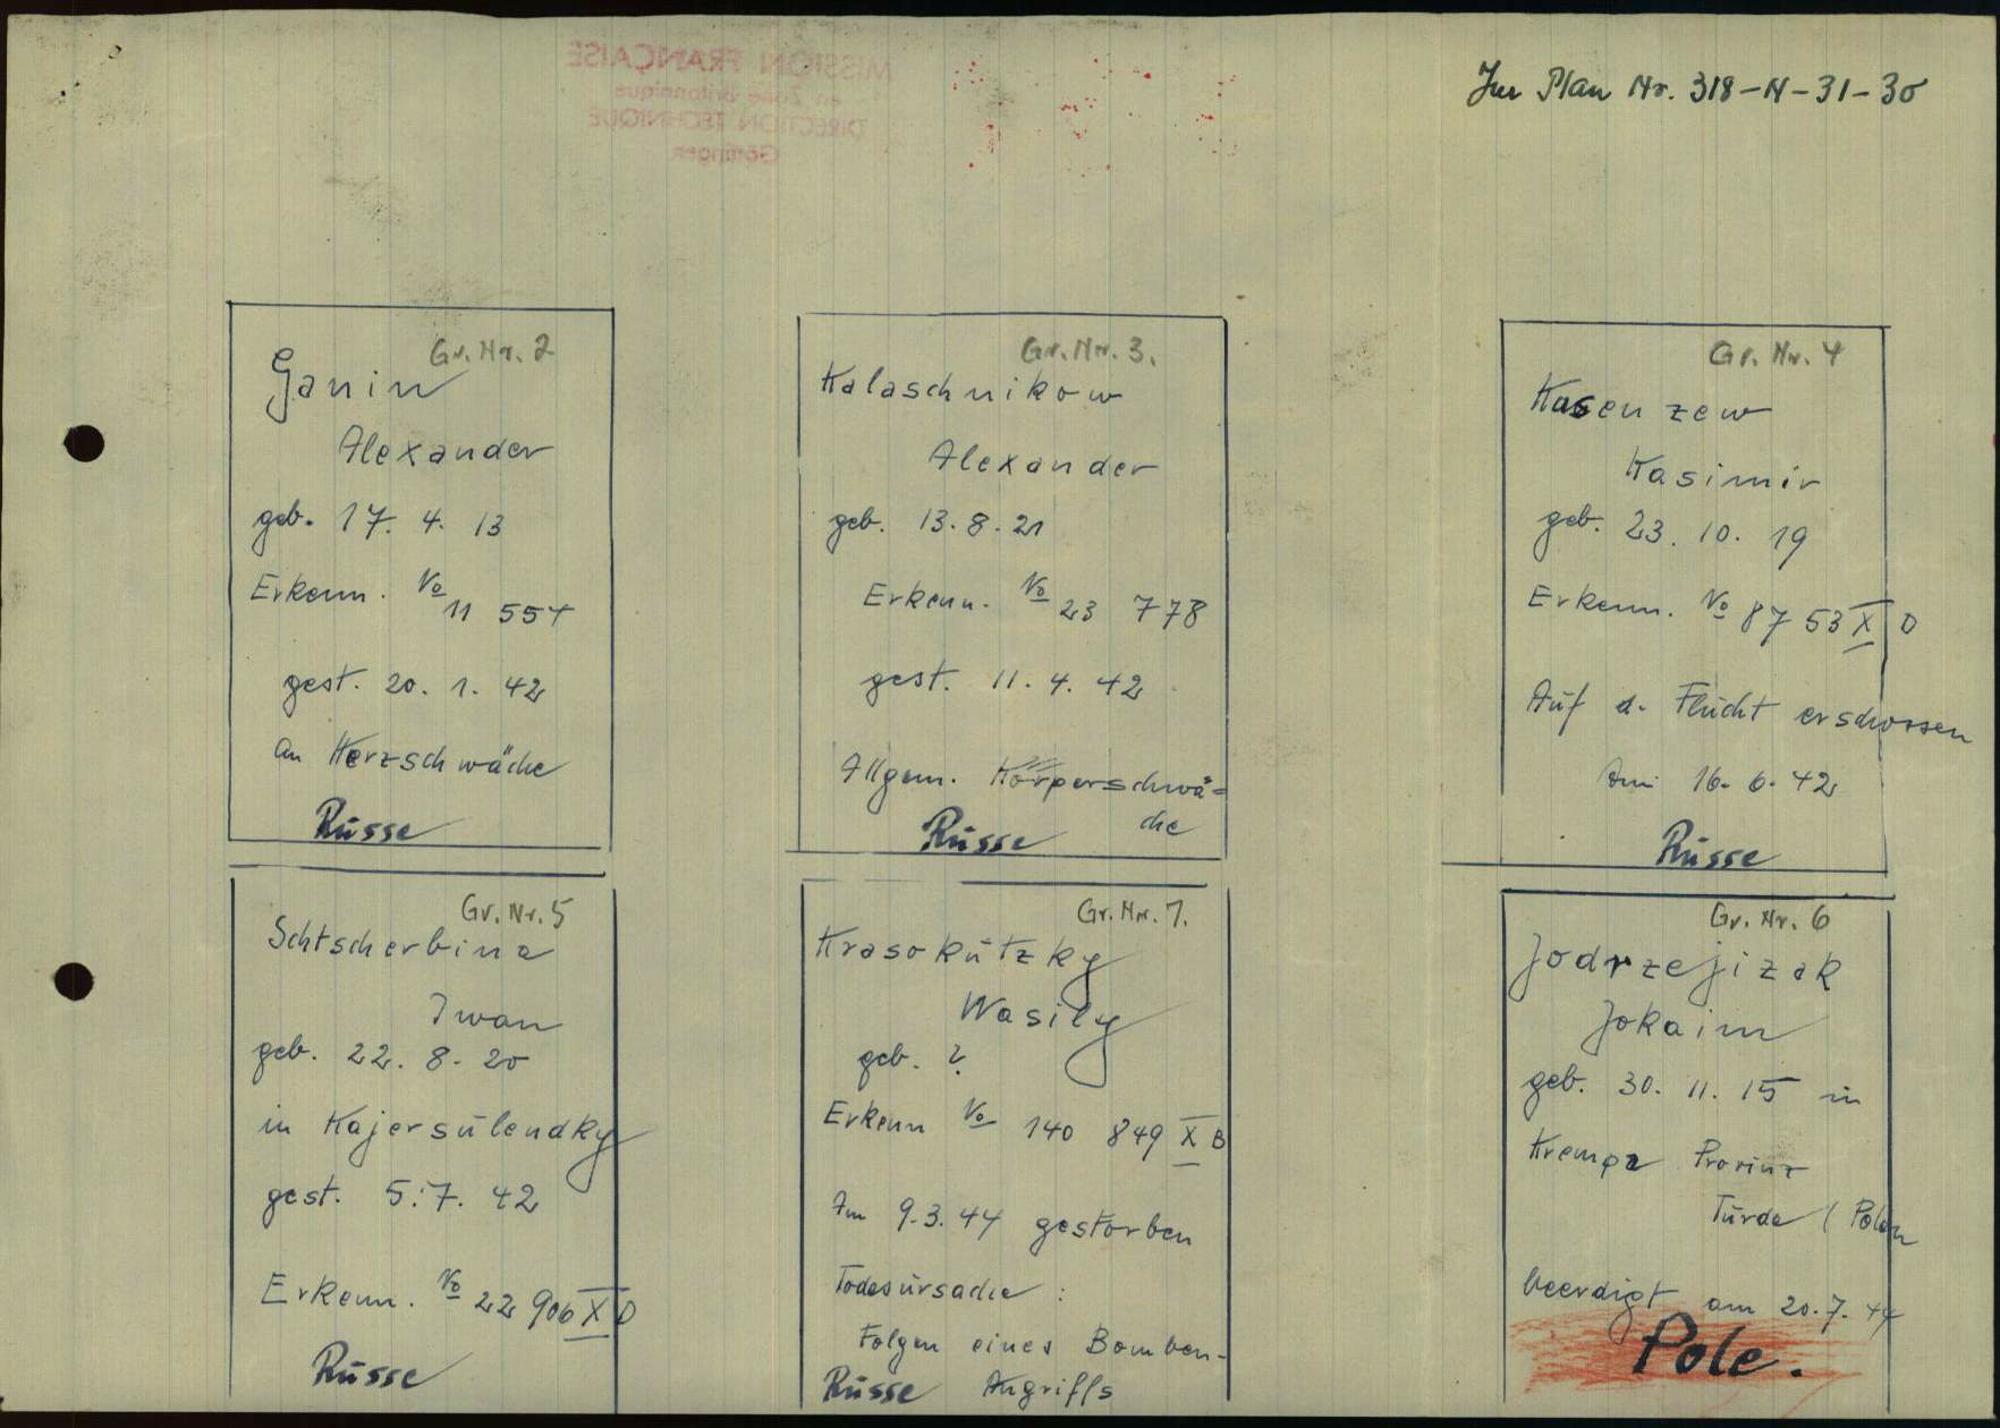 MISSION FRANÇAISE
en Zone Britannique
DIRECTION TECHNIQUE
Göttingen
Zur Plan Nr. 318-N-31-30
Gr. Nr. 2
Ganin
Alexander
geb. 17. 4. 13
Erkenn. No 11 554
gest. 20. 1. 42
an Herzschwäche
Russe
Gr. Nr. 3.
Kalaschnikow
Alexander
geb. 13. 8. 21
Erkenn. No 23 778
gest. 11. 4. 42
Allgem. Körperschwä=
che
Russe
Gr. Nr. 4
Kasenzew
Kasimir
geb. 23. 10. 19
Erkenn. No 87 53 X D
Auf d. Flucht erschossen
Am 16. 6. 42
Russe
Gr. Nr. 5
Schtscherbina
Iwan
geb. 22. 8. 20
in Kajersulendky
gest. 5. 7. 42
Erkenn. No 22 906 X D
Russe
Gr. Nr. 7.
Krasokutzky
Wasily
geb. ?
Erkenn No 140 849 X B
Am 9. 3. 44 gestorben
Todesursache :
Folgen eines Bomben-
Russe Angriffs
Gr. Nr. 6
Jodrzejizak
Jokaim
geb. 30. 11. 15 in
Krempa Provinz
Turda ( Polen
beerdigt am 20. 7. 44
Pole.